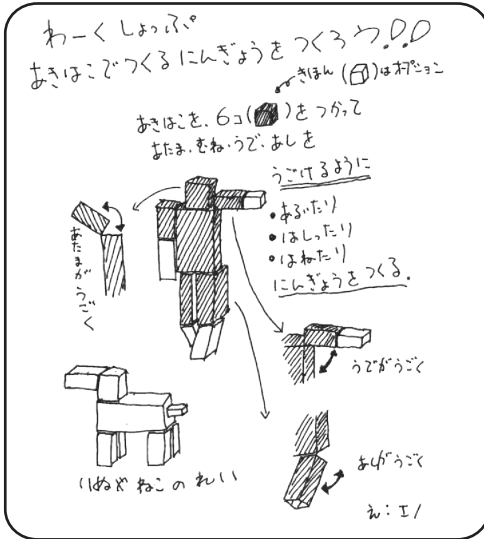 わーくしょっぷ
あきはこでつくるにんぎょうをつくろう!!!
きほん ( )はオプション
あきはこを、6コ( )をつかって
あたま・むね・うで・あしを
うごけるように
・あるいたり
・はしったり
・はねたり
にんぎょうをつくる.
あたまがうごく
うでがうごく
あしがうごく
いぬやねこのれい
え:エノ